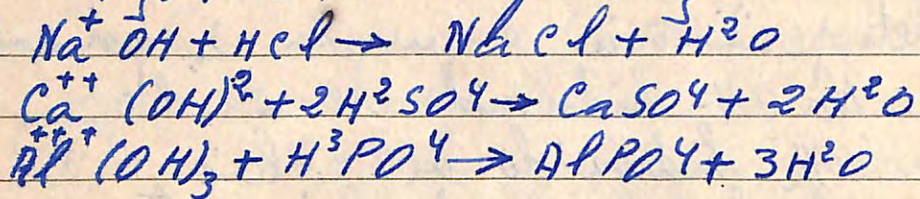 Na⁺OH + HCl → NaCl + H²O
Ca⁺⁺(OH)² + 2H²SO⁴ → CaSO⁴ + 2H²O
Al⁺⁺⁺(OH)₃ + H³PO⁴ → AlPO⁴ + 3H²O